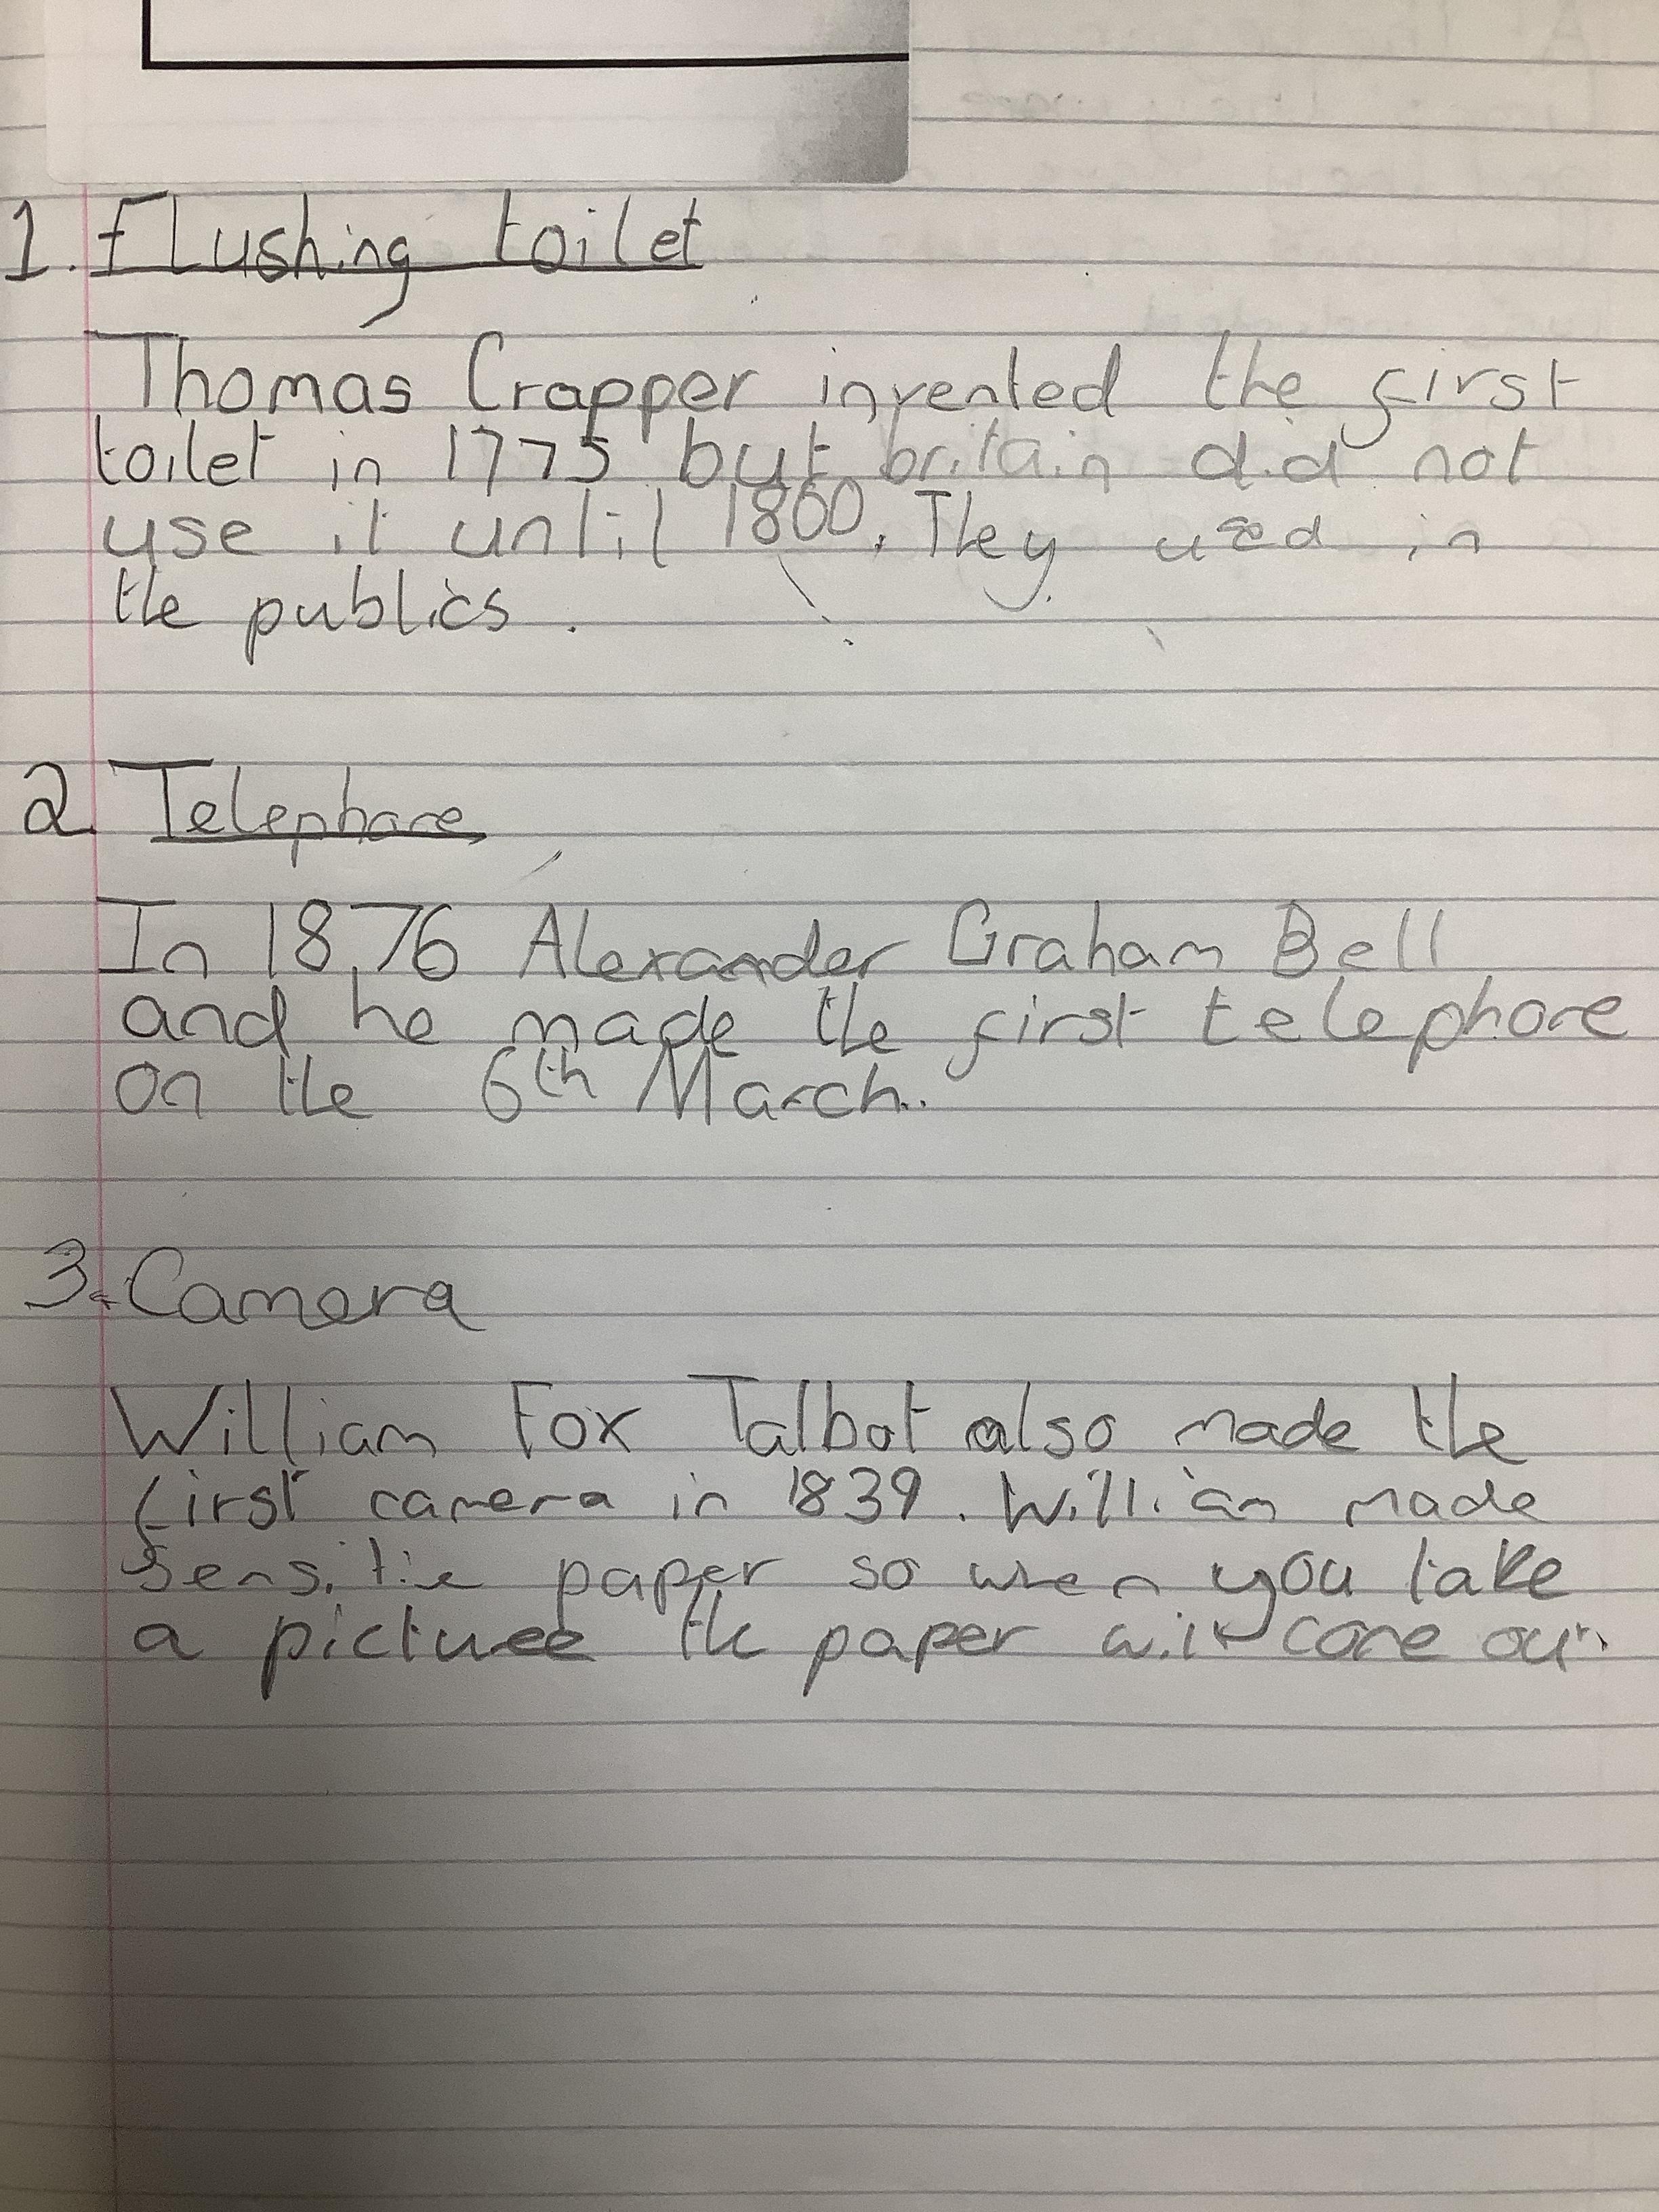 1. Flushing toilet
Thomas Crapper invented the first
toilet in 1775 but britain did not
use it until 1860. They used in
the publics.
2. Telephone
In 1876 Alexander Graham Bell
and he made the first telephone
on the 6th March.
3. Camera
William Fox Talbot also made the
first camera in 1839. William made
sensitie paper so when you take
a picture the paper will come out.